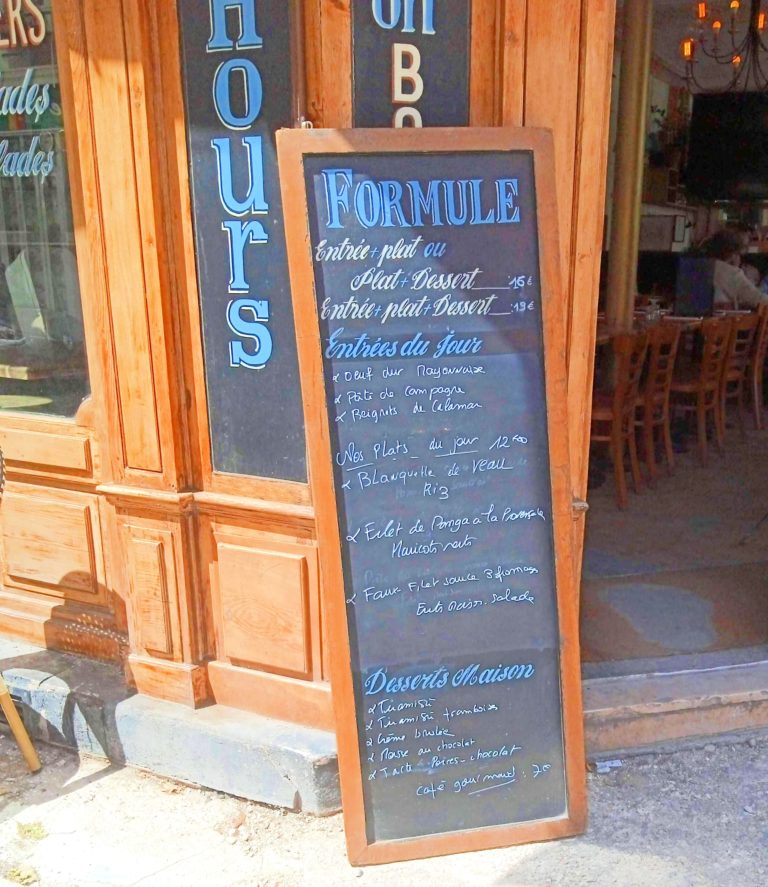 ERS
ades
lades
Hours
on
B
FORMULE
Entrée+plat ou
Plat+Dessert 15€
Entrée+plat+Dessert 19€
Entrées du Jour
Oeuf dur Mayonnaise
Pâté de Campagne
Beignets de Calamar
Nos Plats du jour 12€00
Blanquette de veau
Riz
Filet de Panga a la Provençale
Haricots verts
Faux Filet sauce 3 fromages
Frits maison. salade
Desserts Maison
Tiramisu
Tiramisu framboise
Crème brulée
Mousse au chocolat
Tarte Poires-chocolat
café gourmand : 7€